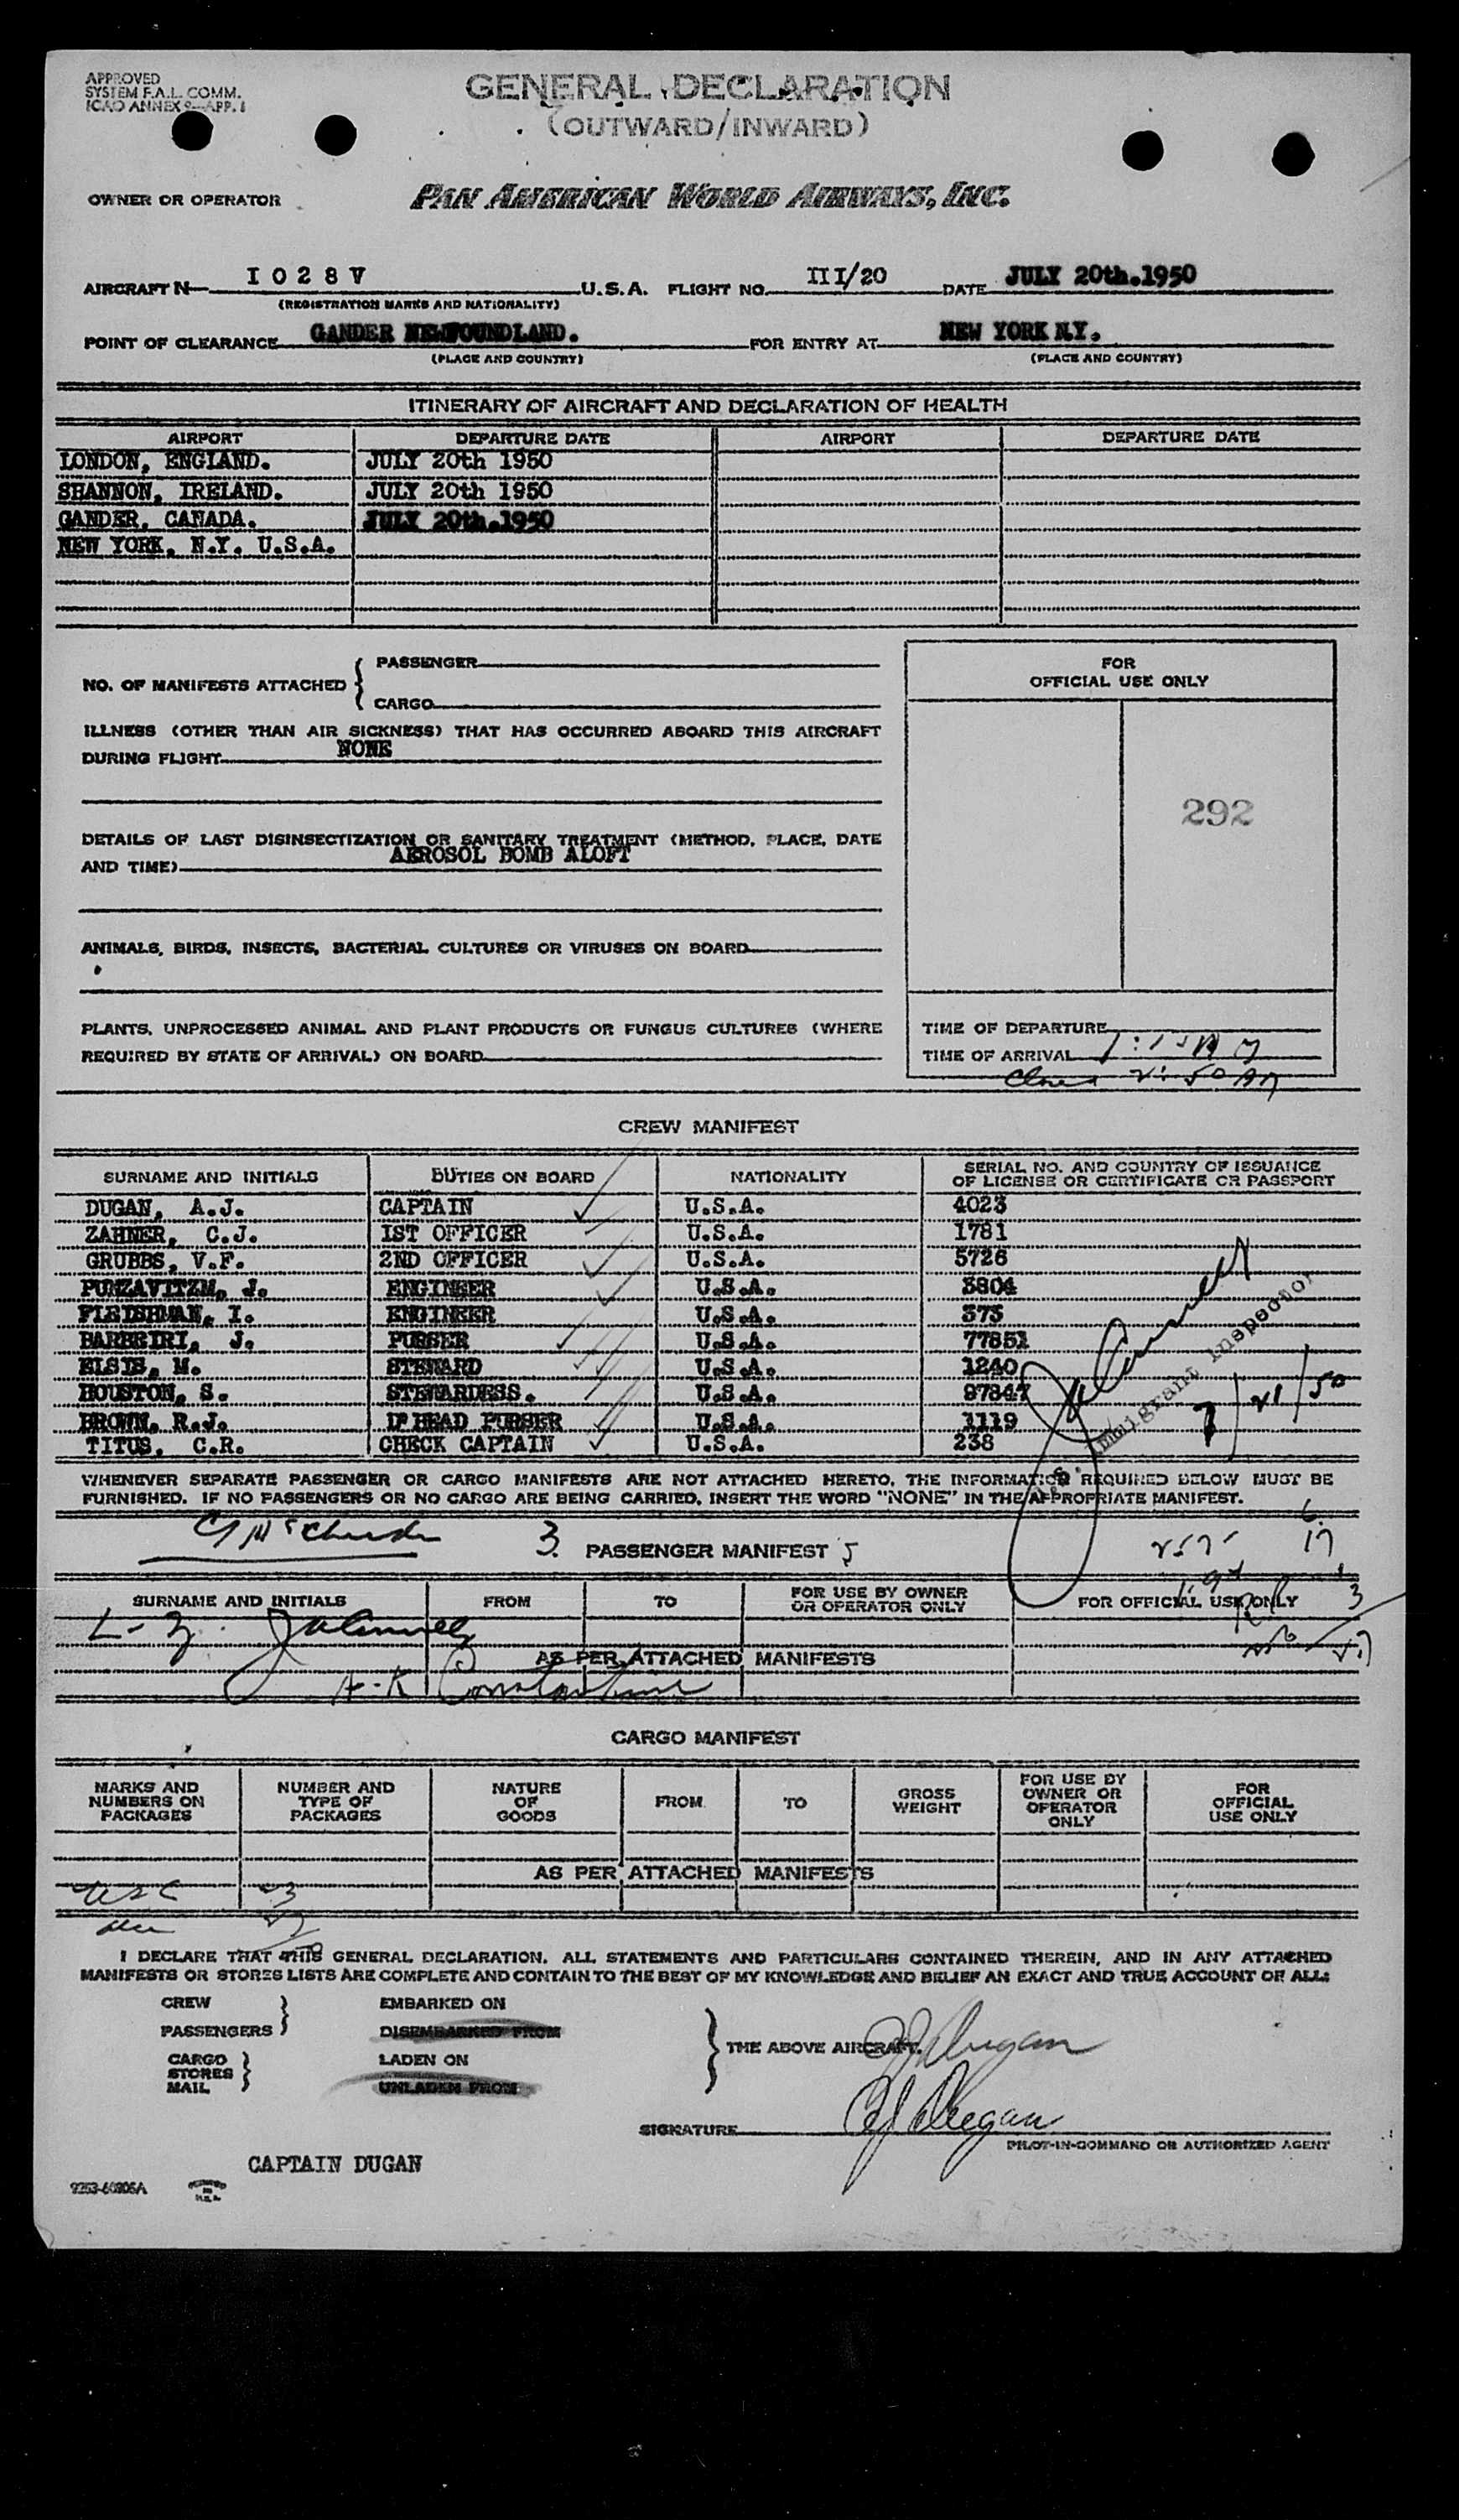 APPROVED
SYSTEM F.A.L. COMM.
ICAO ANNEX 9—APP. 1
GENERAL DECLARATION
(OUTWARD/INWARD)
OWNER OR OPERATOR PAN AMERICAN WORLD AIRWAYS, INC.
AIRCRAFT N— I 0 2 8 V U.S.A. FLIGHT NO. III/20 DATE JULY 20th.1950
(REGISTRATION MARKS AND NATIONALITY)
POINT OF CLEARANCE GANDER NEWFOUNDLAND. FOR ENTRY AT NEW YORK N.Y.
(PLACE AND COUNTRY) (PLACE AND COUNTRY)
ITINERARY OF AIRCRAFT AND DECLARATION OF HEALTH
AIRPORT DEPARTURE DATE AIRPORT DEPARTURE DATE
LONDON, ENGLAND. JULY 20th 1950
SHANNON, IRELAND. JULY 20th 1950
GANDER, CANADA. JULY 20th.1950
NEW YORK, N.Y. U.S.A.
NO. OF MANIFESTS ATTACHED { PASSENGER
CARGO
FOR
OFFICIAL USE ONLY
ILLNESS (OTHER THAN AIR SICKNESS) THAT HAS OCCURRED ABOARD THIS AIRCRAFT
DURING FLIGHT NONE
292
DETAILS OF LAST DISINSECTIZATION OR SANITARY TREATMENT (METHOD, PLACE, DATE
AND TIME) AEROSOL BOMB ALOFT
ANIMALS, BIRDS, INSECTS, BACTERIAL CULTURES OR VIRUSES ON BOARD
PLANTS, UNPROCESSED ANIMAL AND PLANT PRODUCTS OR FUNGUS CULTURES (WHERE
REQUIRED BY STATE OF ARRIVAL) ON BOARD
TIME OF DEPARTURE
TIME OF ARRIVAL 1:15 AM
2:50 AM
CREW MANIFEST
SURNAME AND INITIALS DUTIES ON BOARD NATIONALITY SERIAL NO. AND COUNTRY OF ISSUANCE
OF LICENSE OR CERTIFICATE OR PASSPORT
DUGAN, A.J. CAPTAIN U.S.A. 4023
ZAHNER, C.J. IST OFFICER U.S.A. 1781
GRUBBS, V.F. 2ND OFFICER U.S.A. 5726
J. ENGINEER U.S.A. 3804
FLEISHMAN, I. ENGINEER U.S.A. 373
BARBEIRI, J. PURSER U.S.A. 77851
ELSIE, M. STEWARD U.S.A. 1240
HOUSTON, S. STEWARDESS. U.S.A. 87847
BROWN, R.J. HEAD PURSER U.S.A. 1119
TITUS, C.R. CHECK CAPTAIN U.S.A. 238
Immigrant Inspector
7/21/50
WHENEVER SEPARATE PASSENGER OR CARGO MANIFESTS ARE NOT ATTACHED HERETO, THE INFORMATION REQUIRED BELOW MUST BE
FURNISHED. IF NO PASSENGERS OR NO CARGO ARE BEING CARRIED, INSERT THE WORD "NONE" IN THE APPROPRIATE MANIFEST.
3. PASSENGER MANIFEST 5
SURNAME AND INITIALS FROM TO FOR USE BY OWNER
OR OPERATOR ONLY FOR OFFICIAL USE ONLY
L-Z
AS PER ATTACHED MANIFESTS
A-K Constantine
CARGO MANIFEST
MARKS AND
NUMBERS ON
PACKAGES NUMBER AND
TYPE OF
PACKAGES NATURE
OF
GOODS FROM TO GROSS
WEIGHT FOR USE BY
OWNER OR
OPERATOR
ONLY FOR
OFFICIAL
USE ONLY
AS PER ATTACHED MANIFESTS
USC
I DECLARE THAT THIS GENERAL DECLARATION, ALL STATEMENTS AND PARTICULARS CONTAINED THEREIN, AND IN ANY ATTACHED
MANIFESTS OR STORES LISTS ARE COMPLETE AND CONTAIN TO THE BEST OF MY KNOWLEDGE AND BELIEF AN EXACT AND TRUE ACCOUNT OF ALL:
CREW
PASSENGERS } EMBARKED ON
DISEMBARKED FROM
CARGO
STORES
MAIL } LADEN ON
UNLADEN FROM
} THE ABOVE AIRCRAFT. AJ Dugan
SIGNATURE AJ Dugan
PILOT-IN-COMMAND OR AUTHORIZED AGENT
CAPTAIN DUGAN
9253-60806A